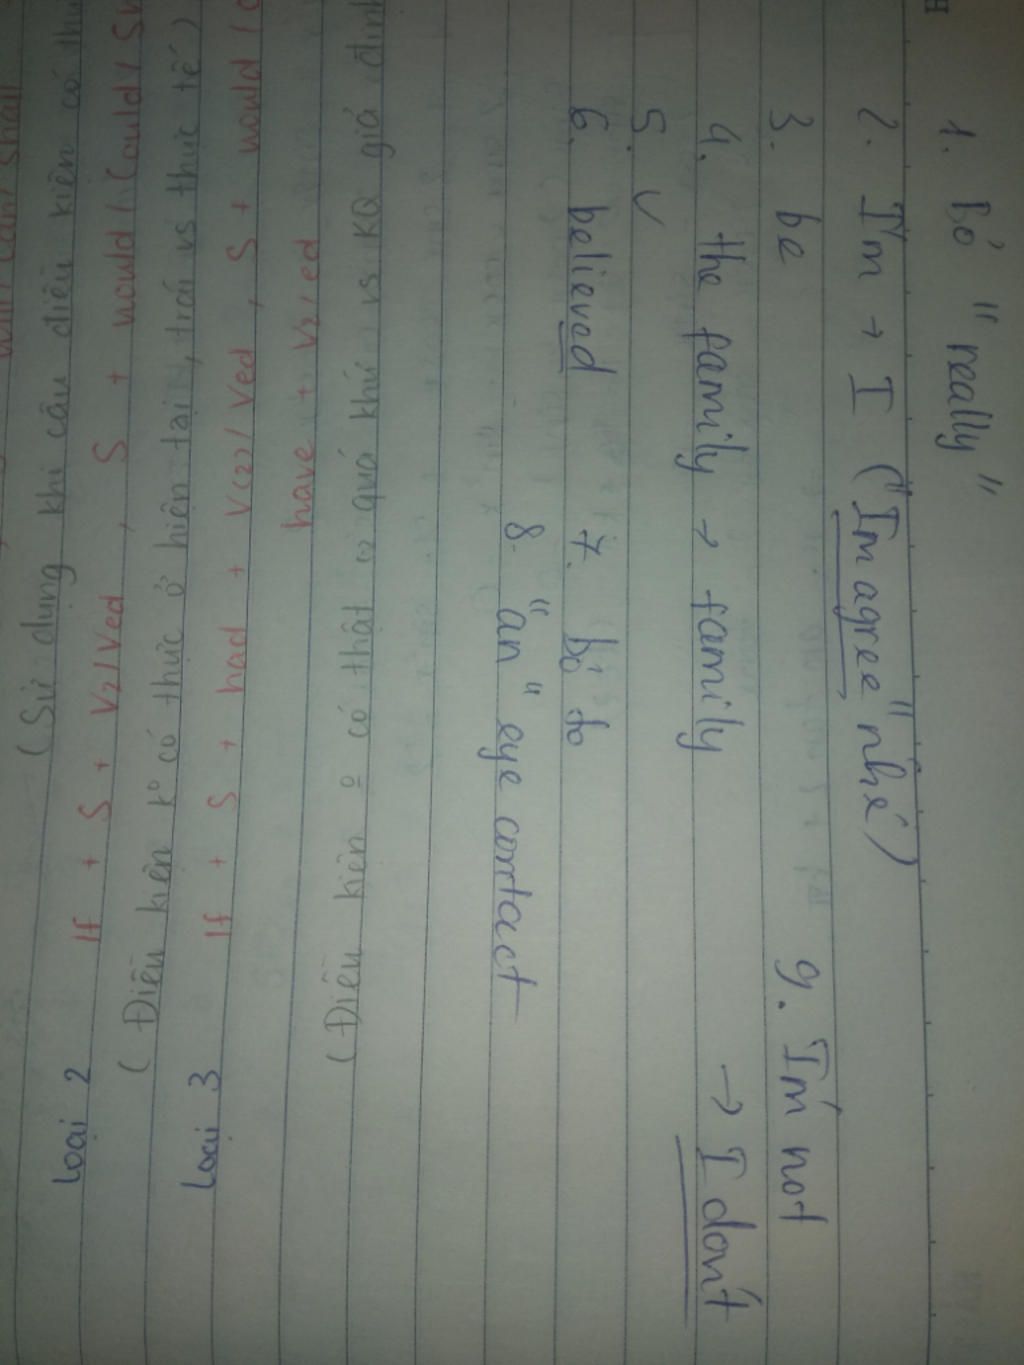 1. Bỏ " really "
2. I'm → I ("I'm agree" nhé)
3. be
9. I'm not
4. the family → family
→ I don't
5. V
6. believed
7. bỏ to
8. "an" eye contact
(Điều kiện o có thật ở quá khứ vs KQ giả định
have + V2/ed
Loại 3 If + S + had + V(2)/Ved, S + would /
(Điều kiện ko có thực ở hiện tại, trái vs thực tế)
Loại 2 If + S + V2/Ved, S + would/Could/
(Sử dụng khi câu điều kiện có
will/can/shall